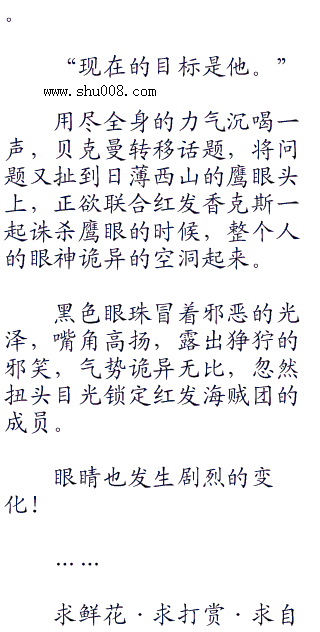 。
“现在的目标是他。”
www.shu008.com
用尽全身的力气沉喝一
声，贝克曼转移话题，将问
题又扯到日薄西山的鹰眼头
上，正欲联合红发香克斯一
起诛杀鹰眼的时候，整个人
的眼神诡异的空洞起来。
黑色眼珠冒着邪恶的光
泽，嘴角高扬，露出狰狞的
邪笑，气势诡异无比，忽然
扭头目光锁定红发海贼团的
成员。
眼睛也发生剧烈的变
化！
……
求鲜花·求打赏·求自